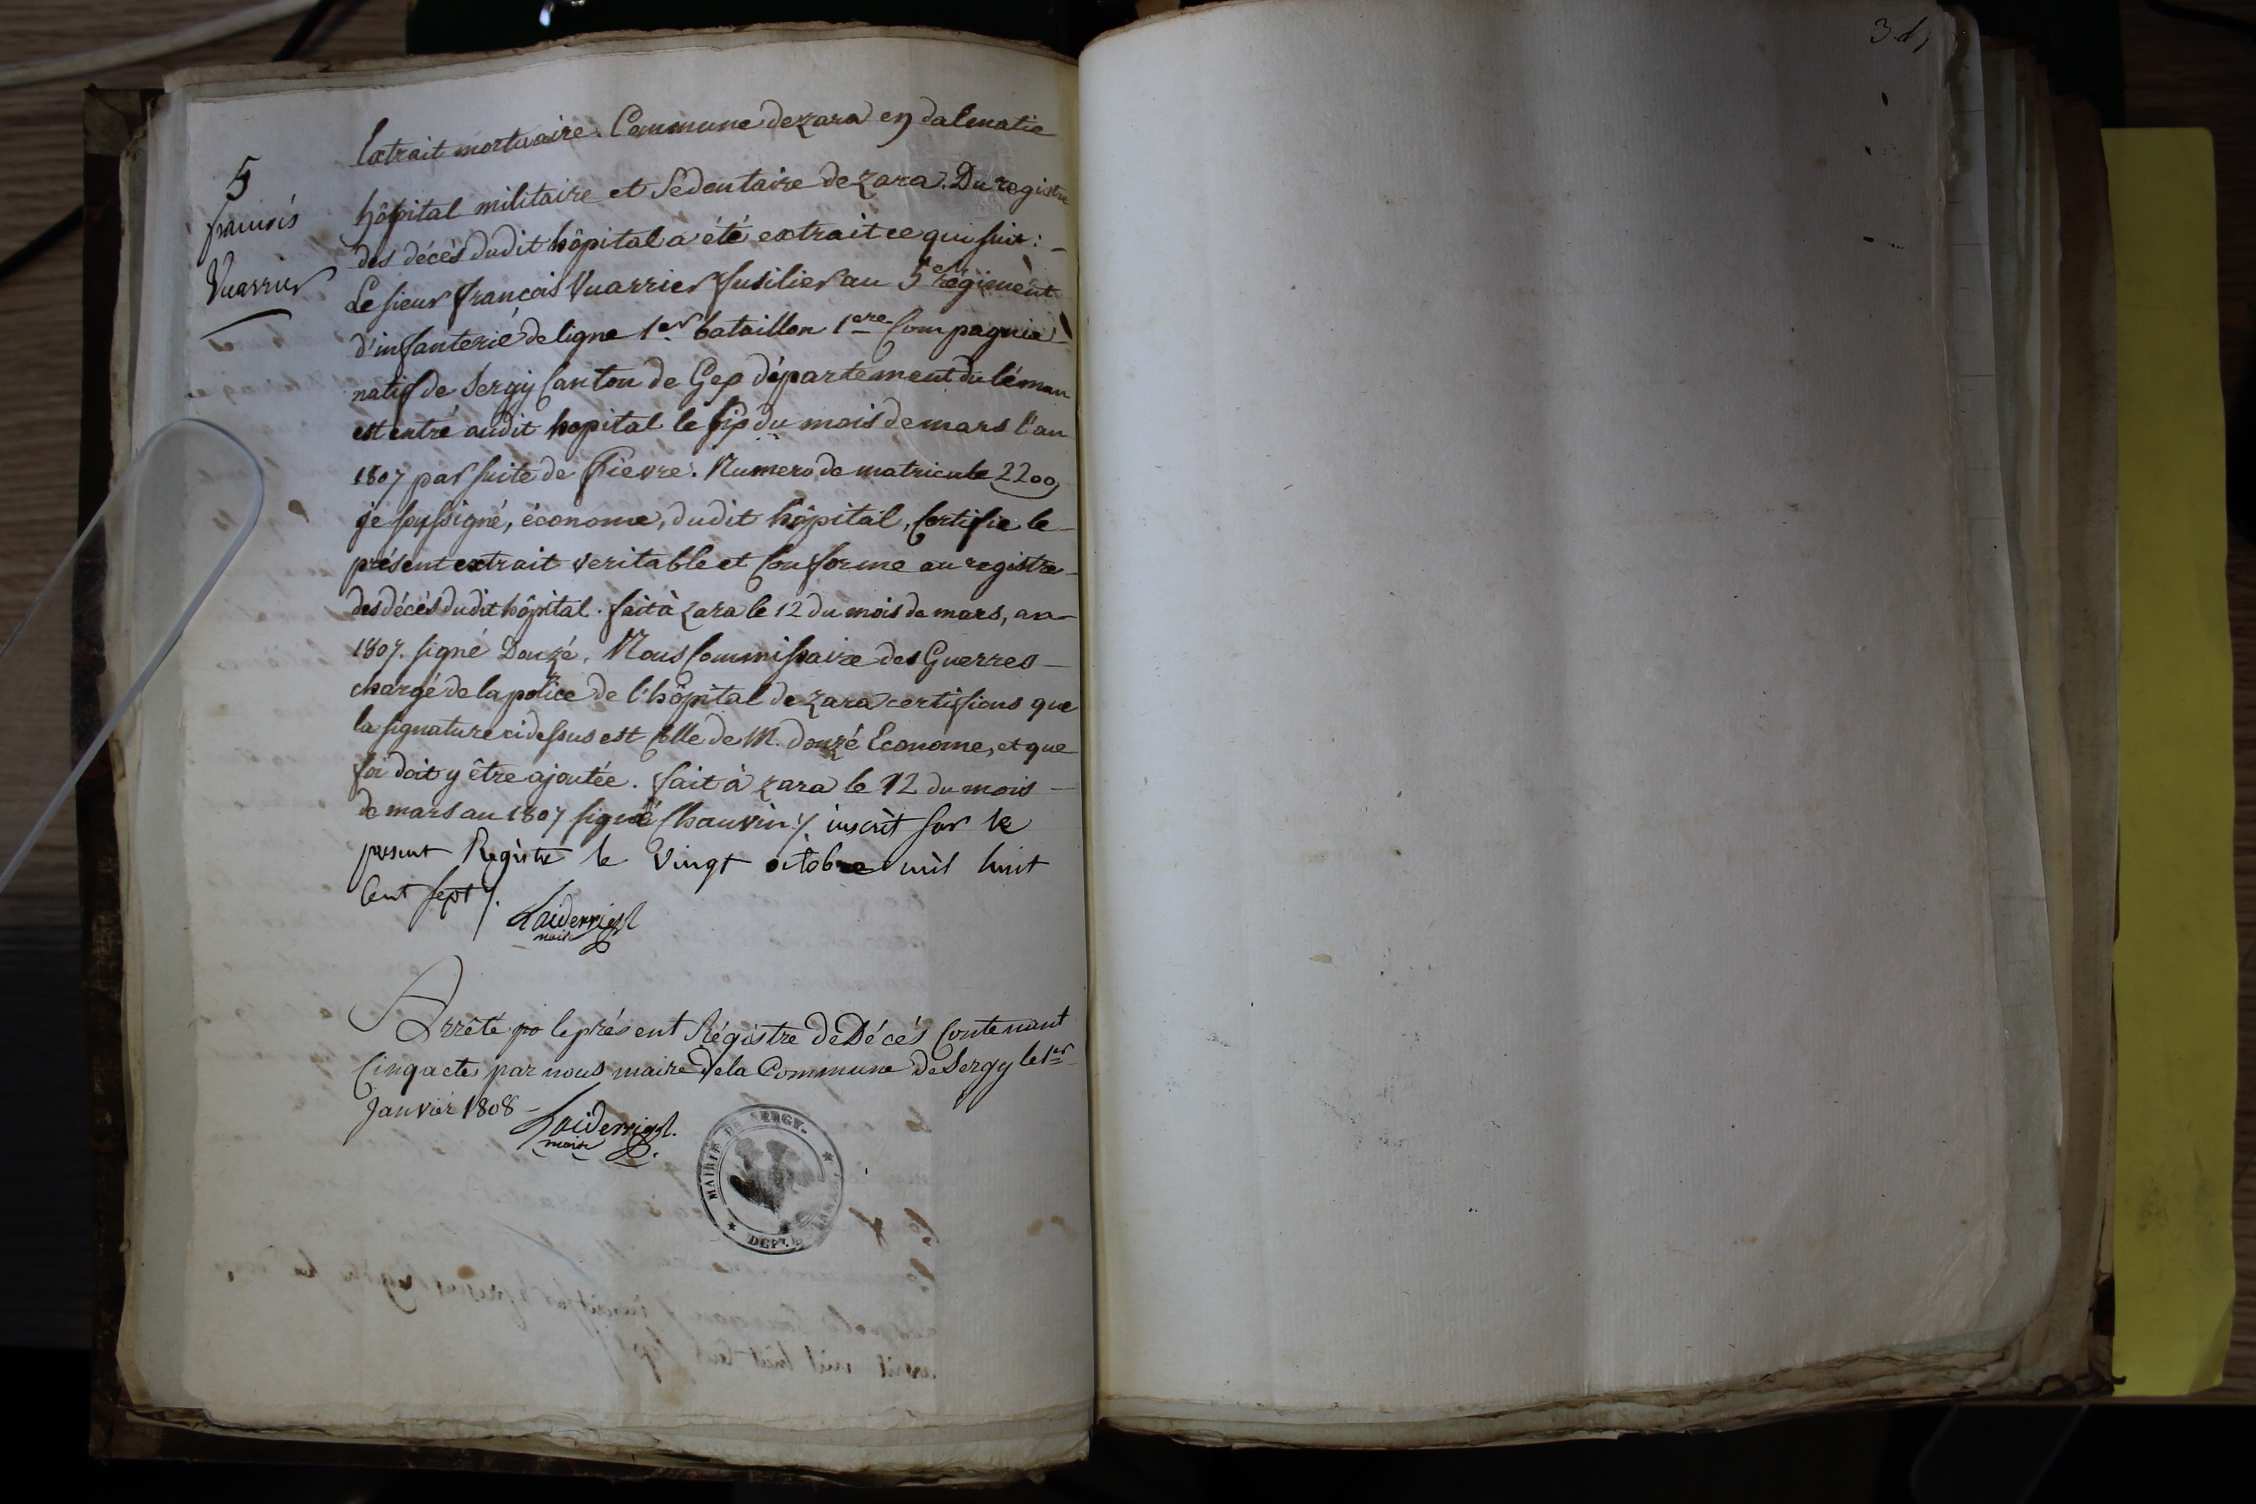 3. d,
Extrait mortuaire. Commune de zara en dalmatie
5
françois
Vuarrier
hôpital militaire et Sédentaire de zara. Du registre
des décès dudit hôpital a été extrait ce qui suit :
Le sieur françois Vuarrier fusilier au 5e régiment
d'infanterie de ligne 1er bataillon 1ere Compagnie
natif de Sergy Canton de Gex département du léman
est entré audit hopital le six du mois de mars l'an
1807 par suite de fievre. Numero de matricule 2200
je soussigné, économe, dudit hôpital, certifie le
présent extrait veritable et Conforme au registre
des décès dudit hôpital. fait à zara le 12 du mois de mars, an
1807. signé Douzé. Nous Commissaire des Guerres
chargé de la police de l'hôpital de zara certifions que
la signature ci dessus est celle de M. douzé Econome, et que
foi doit y être ajoutée. fait à zara le 12 du mois
de mars an 1807 signé Chauvin ./. inscrit sur le
present Registre le vingt octobre mil huit
Cent sept ./.
maire
Arrêté po le présent Régistre de Décés Contenant
Cinq acte par nous maire de la Commune de Sergy le 1er
Janvier 1808
maire
MAIRIE DE SERGY.